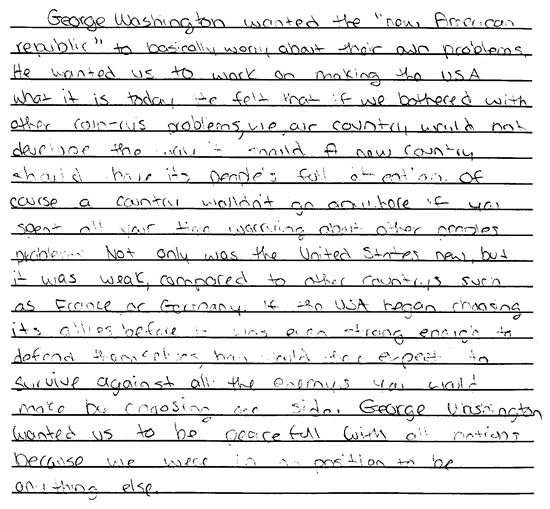 George Washington wanted the "new American
republic" to basically worry about their own problems.
He wanted us to work on making the USA
what it is today. He felt that if we bothered with
other countrys problems, we, our country would not
develope the way it should. A new country
should have its people's full attention. Of
course a country wouldn't go anywhere if you
spent all your time worrying about other peoples
problems. Not only was the United States new, but
it was weak, compared to other countrys such
as France or Germany. If the USA began choosing
its allies before it was even strong enough to
defend themselves, how could they expect to
survive against all the enemys you would
make by choosing one side. George Washington
wanted us to be peacefull with all nations
because we were in no position to be
anything else.